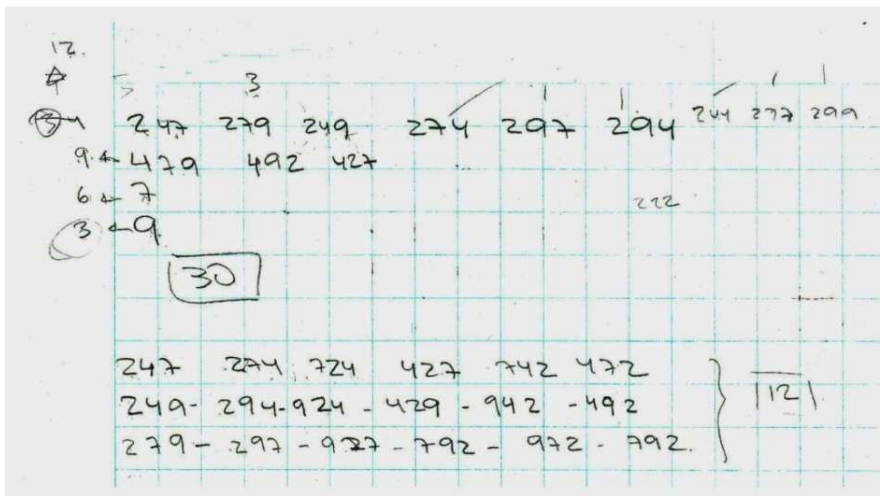 12.
3
247 279 249 274 297 294 244 277 299
9 ← 479 492 427
6 ← 7
222
3 ← 9
30
247 274 724 427 742 472
249- 294-924 - 429 - 942 -492
279- 297 - 927- 792 - 972 - 792.
12